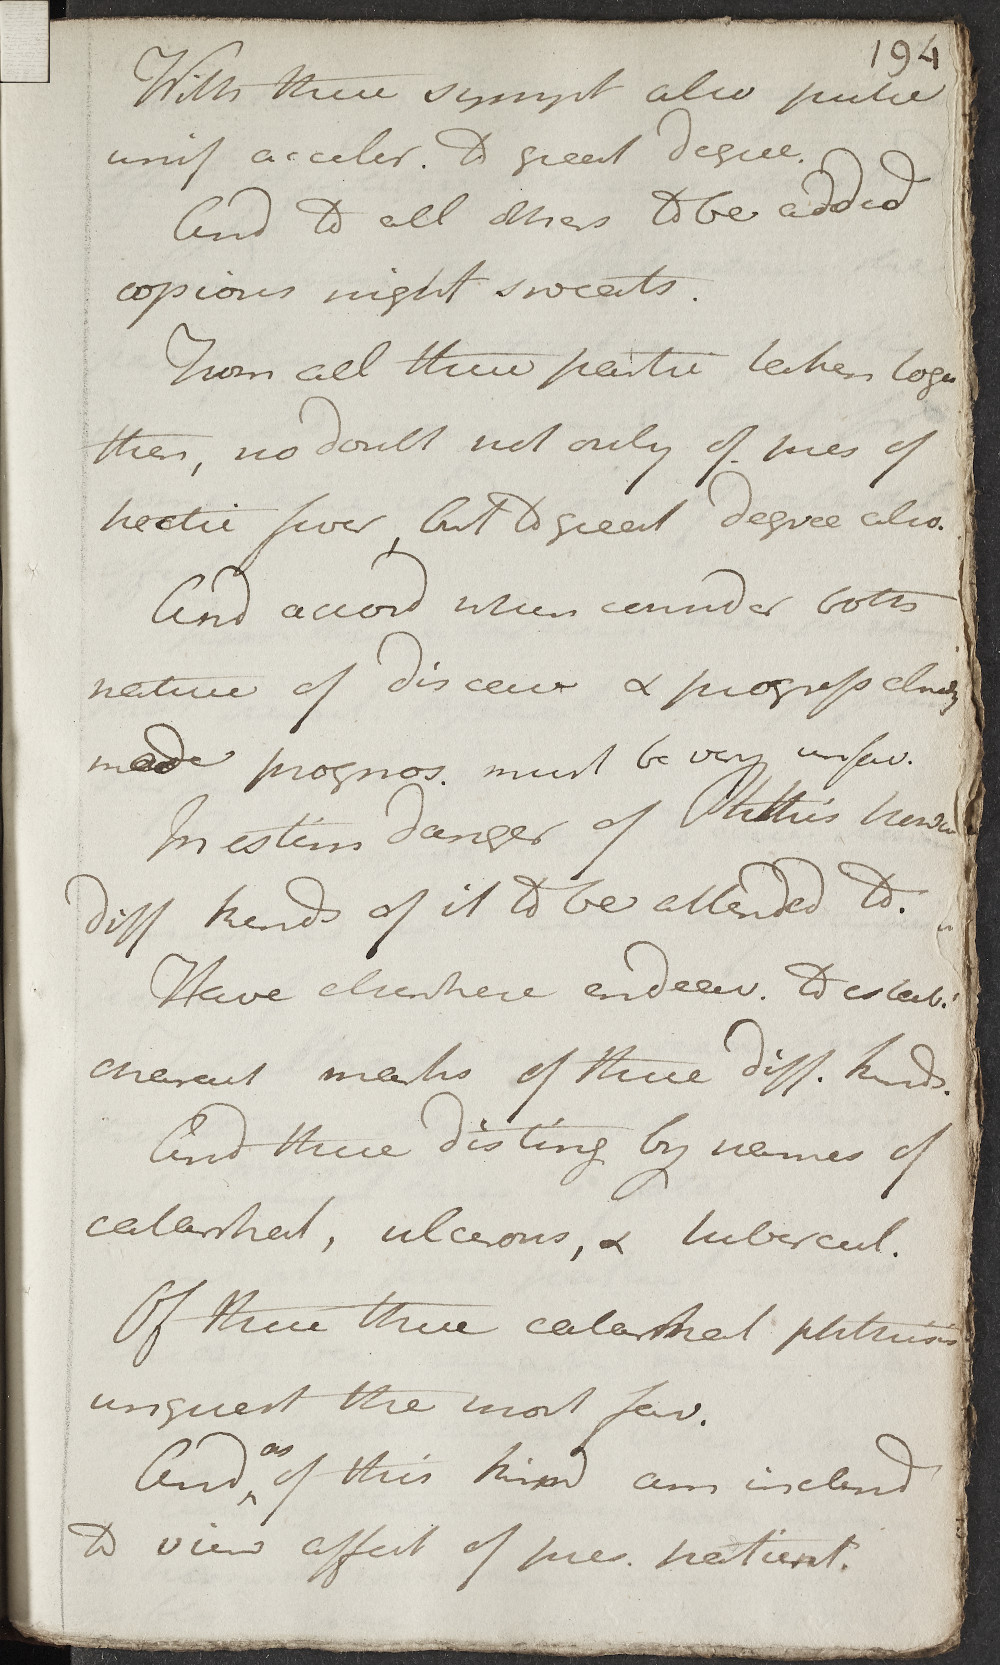 194
With these sympt also pulse
unif acceler. to great degree.
And to all others to be added
copious night sweats.
From all these partic taken toge
ther, no doubt not only of pres of
hectic fever, but to great degree also.
And accord when consider both
nature of disease & progress already
made prognos. must be very unfav.
In estim danger of Phthisis however
diff kinds of it to be attended to.
Have elsewhere endeav. to establ.
charact marks of three diff. kinds.
And these disting by names of
catarrhal, ulcerous, & tubercul.
Of these three catarrhal phthisis
unquest the most fav.
And as of this kind am inclend
to view affect of pres. patient.